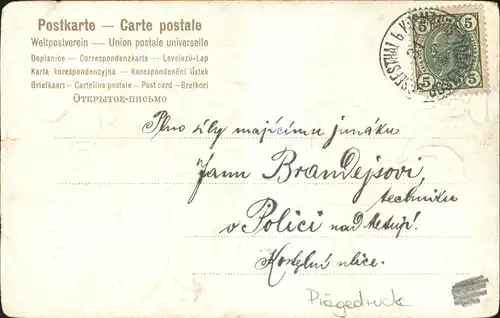 Postkarte — Carte postale
Weltpostverein — Union postale universelle
Dopisnice — Correspondenzkarte — Levelező-Lap
Karta korespondencyjna — Korespondenční lístek
Briefkaart — Cartolina postale — Post card — Brefkort
ОТКРЫТОЕ-ПИСЬМО
5 5
5 5
Plno síly majícímu junáku
Janu Brandejsovi,
techniku
v Polici nad Metují.
Kostelní ulice.
Prägedruck